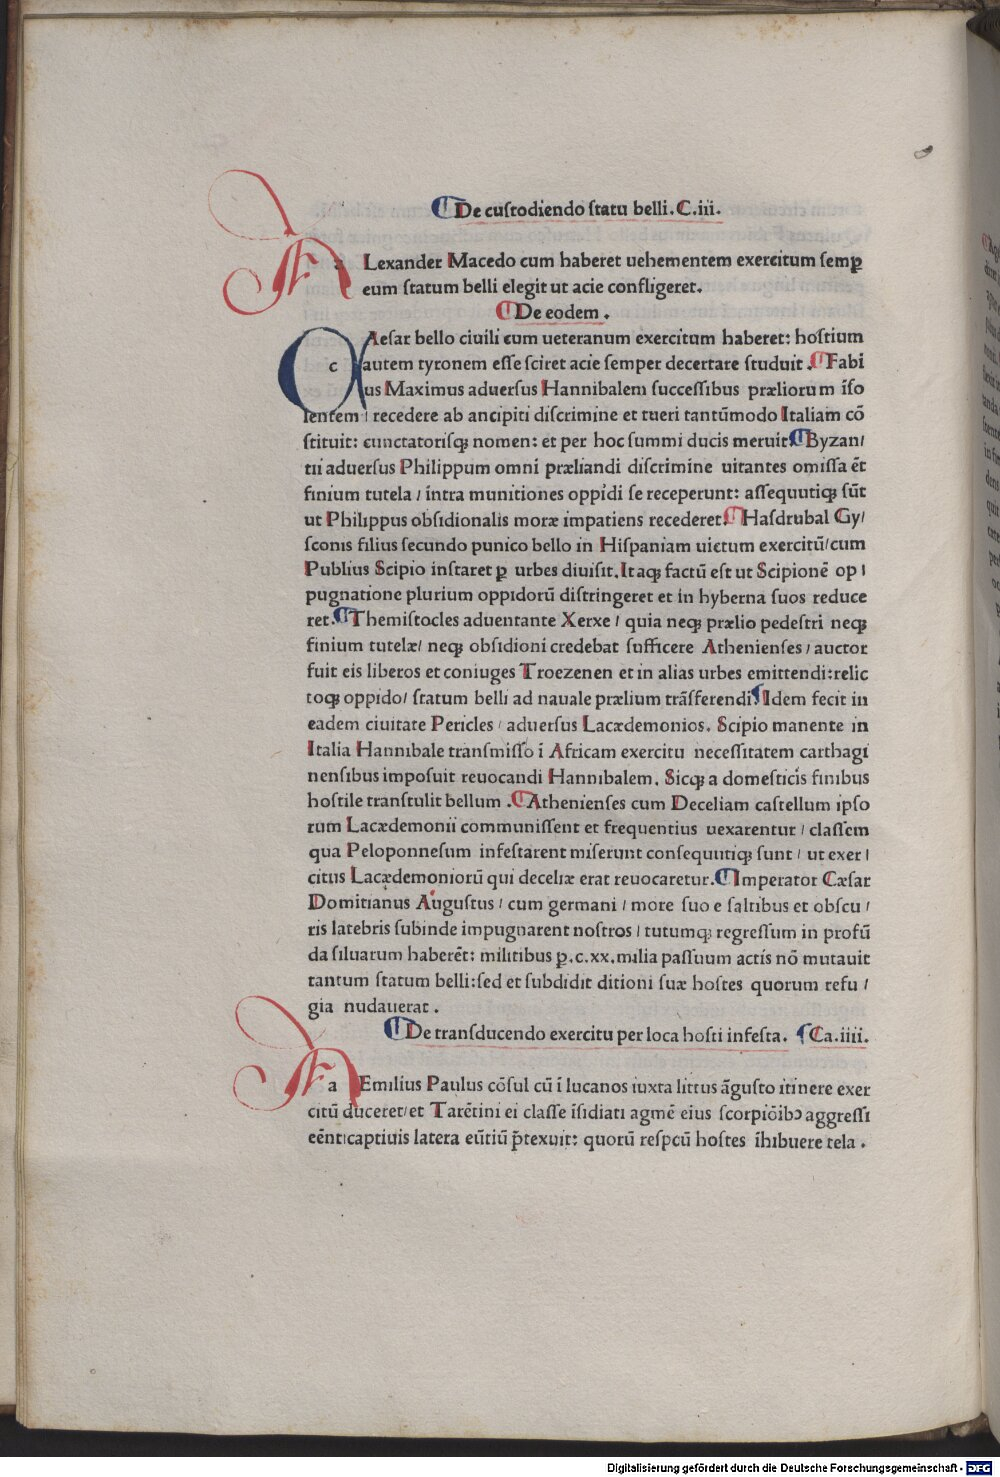 ¶De cuſtodiendo ſtatu belli. C.iii.
aLexander Macedo cum haberet uehementem exercitum ſemꝑ
eum ſtatum belli elegit ut acie confligeret.
¶De eodem .
cAeſar bello ciuili cum ueteranum exercitum haberet: hoſtium
autem tyronem eſſe ſciret acie ſemper decertare ſtuduit . ¶Fabi
us Maximus aduerſus Hannibalem ſucceſſibus præliorum īſo
lentem / recedere ab ancipiti diſcrimine et tueri tantūmodo Italiam cō
ſtituit: cunctatoriſꝗ nomen: et per hoc ſummi ducis meruit. ¶Byzan/
tii aduerſus Philippum omni præliandi diſcrimine uitantes omiſſa ēt
finium tutela / intra munitiones oppidi ſe receperunt: aſſequutiꝗ ſūt
ut Philippus obſidionalis moræ impatiens recederet. ¶Haſdrubal Gy/
ſconis filius ſecundo punico bello in Hiſpaniam uictum exercitū/cum
Publius Scipio inſtaret ꝑ urbes diuiſit. Itaꝗ factū eſt ut Scipionē op /
pugnatione plurium oppidorū diſtringeret et in hyberna ſuos reduce
ret. ¶Themiſtocles aduentante Xerxe / quia neꝗ prælio pedeſtri neꝗ
finium tutelæ/ neꝗ obſidioni credebat ſufficere Athenienſes / auctor
fuit eis liberos et coniuges Troezenen et in alias urbes emittendi:relic
toꝗ oppido/ ſtatum belli ad nauale prælium trāſferendi ¶Idem fecit in
eadem ciuitate Pericles / aduerſus Lacædemonios. Scipio manente in
Italia Hannibale tranſmiſſo ī Africam exercitu neceſſitatem carthagi
nenſibus impoſuit reuocandi Hannibalem. Sicꝗ a domeſticis finibus
hoſtile tranſtulit bellum . ¶Athenienſes cum Deceliam caſtellum ipſo
rum Lacædemonii communiſſent et frequentius uexarentur / claſſem
qua Peloponneſum infeſtarent miſerunt conſequutiꝗ ſunt / ut exer /
citus Lacædemoniorū qui deceliæ erat reuocaretur. ¶Imperator Cæſar
Domitianus Auguſtus / cum germani / more ſuo e ſaltibus et obſcu /
ris latebris ſubinde impugnarent noſtros / tutumꝗ regreſſum in profū
da ſiluarum haberēt: militibus ꝑ.c.xx.milia paſſuum actis nō mutauit
tantum ſtatum belli:ſed et ſubdidit ditioni ſuæ hoſtes quorum refu /
gia nudauerat .
¶De tranſducendo exercitu per loca hoſti infeſta. ¶Ca.iiii.
aEmilius Paulus cōſul cū ī lucanos iuxta littus āguſto itinere exer
citū duceret/et Tarētini ei claſſe īſidiati agmē eius ſcorpiōibꝰ aggreſſi
eēnt:captiuis latera eūtiū p̄texuit: quorū reſpcū hoſtes īhibuere tela .
Digitalisierung gefördert durch die Deutsche Forschungsgemeinschaft - DFG